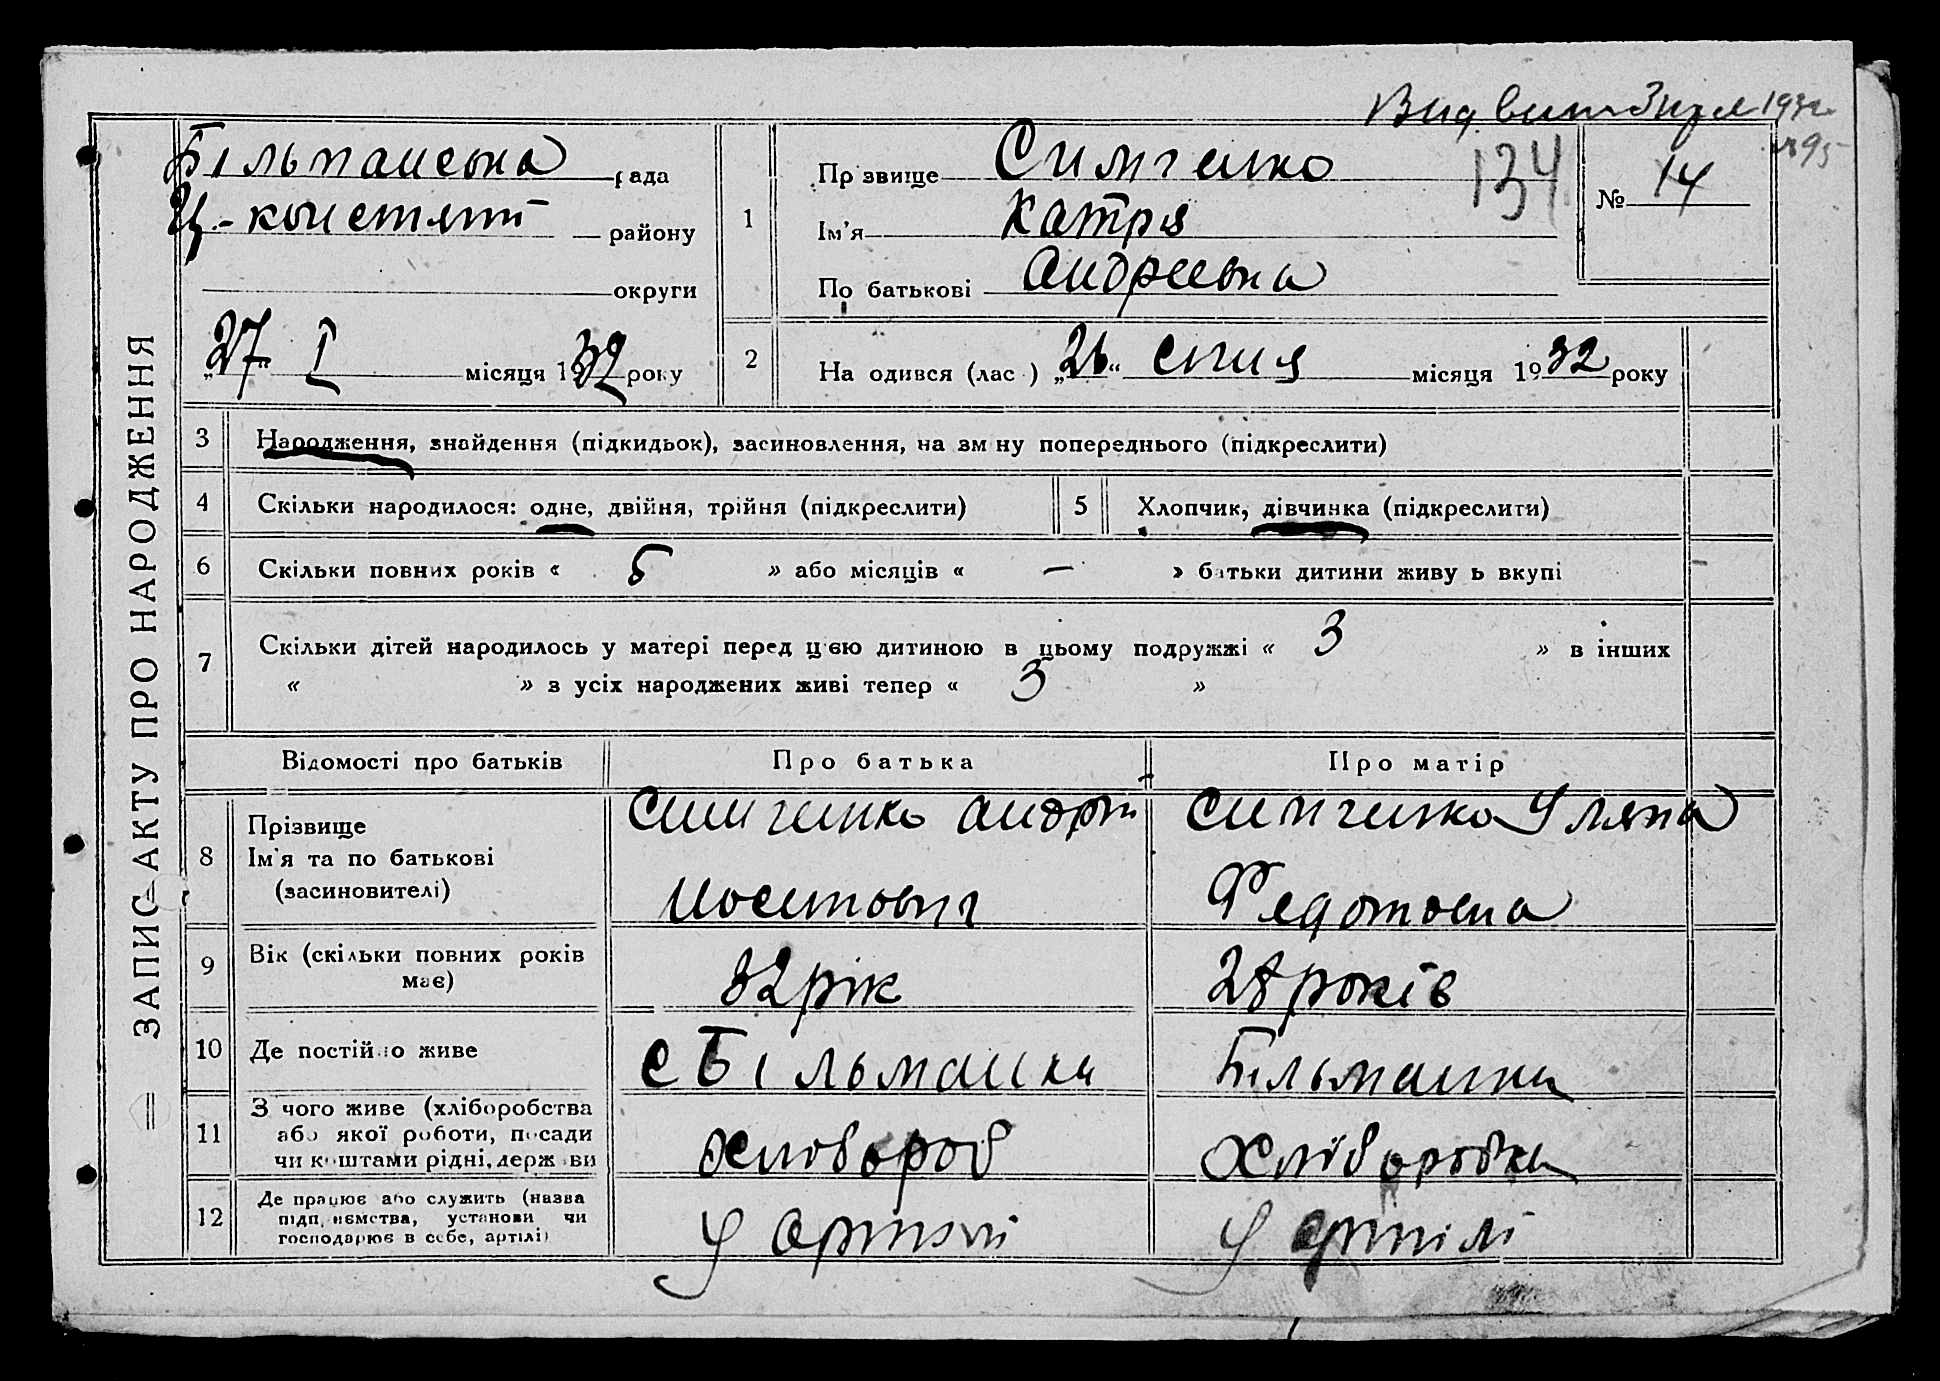 Вид. вит 3 Иул 1932
№ 95
134
ЗАПИС АКТУ ПРО НАРОДЖЕННЯ
Більманська рада
Ц.-констянт району
округи
„27“ I місяця 1932 року
1
Прізвище Симченко
Ім'я Катря
По батькові Андреевна
№ 14
2 На одився (лас ) „26“ січня місяця 1932 року
3 Народження, знайдення (підкидьок), засиновлення, на зм ну попереднього (підкреслити)
4 Скільки народилося: одне, двійня, трійня (підкреслити)
5 Хлопчик, дівчинка (підкреслити)
6 Скільки повних років « 5 » або місяців « — » батьки дитини живу ь вкупі
7 Скільки дітей народилось у матері перед цією дитиною в цьому подружжі « 3 » в інших
« » з усіх народжених живі тепер « 3 »
Відомості про батьків Про батька Про матір
8 Прізвище
Ім'я та по батькові
(засиновителі)
Симченко Андрій
Иосипович
Симченко Уляна
Федотовна
9 Вік (скільки повних років
має)
32 рік
28 років
10 Де постійно живе
с Більманка
Більманка
11 З чого живе (хліборобства
або якої роботи, посади
чи коштами рідні, держ ви
Хлібороб
Хліборобка
12 Де працює або служить (назва
підп иємства, установи чи
господарює в себе, артілі)
у артілі
у артілі